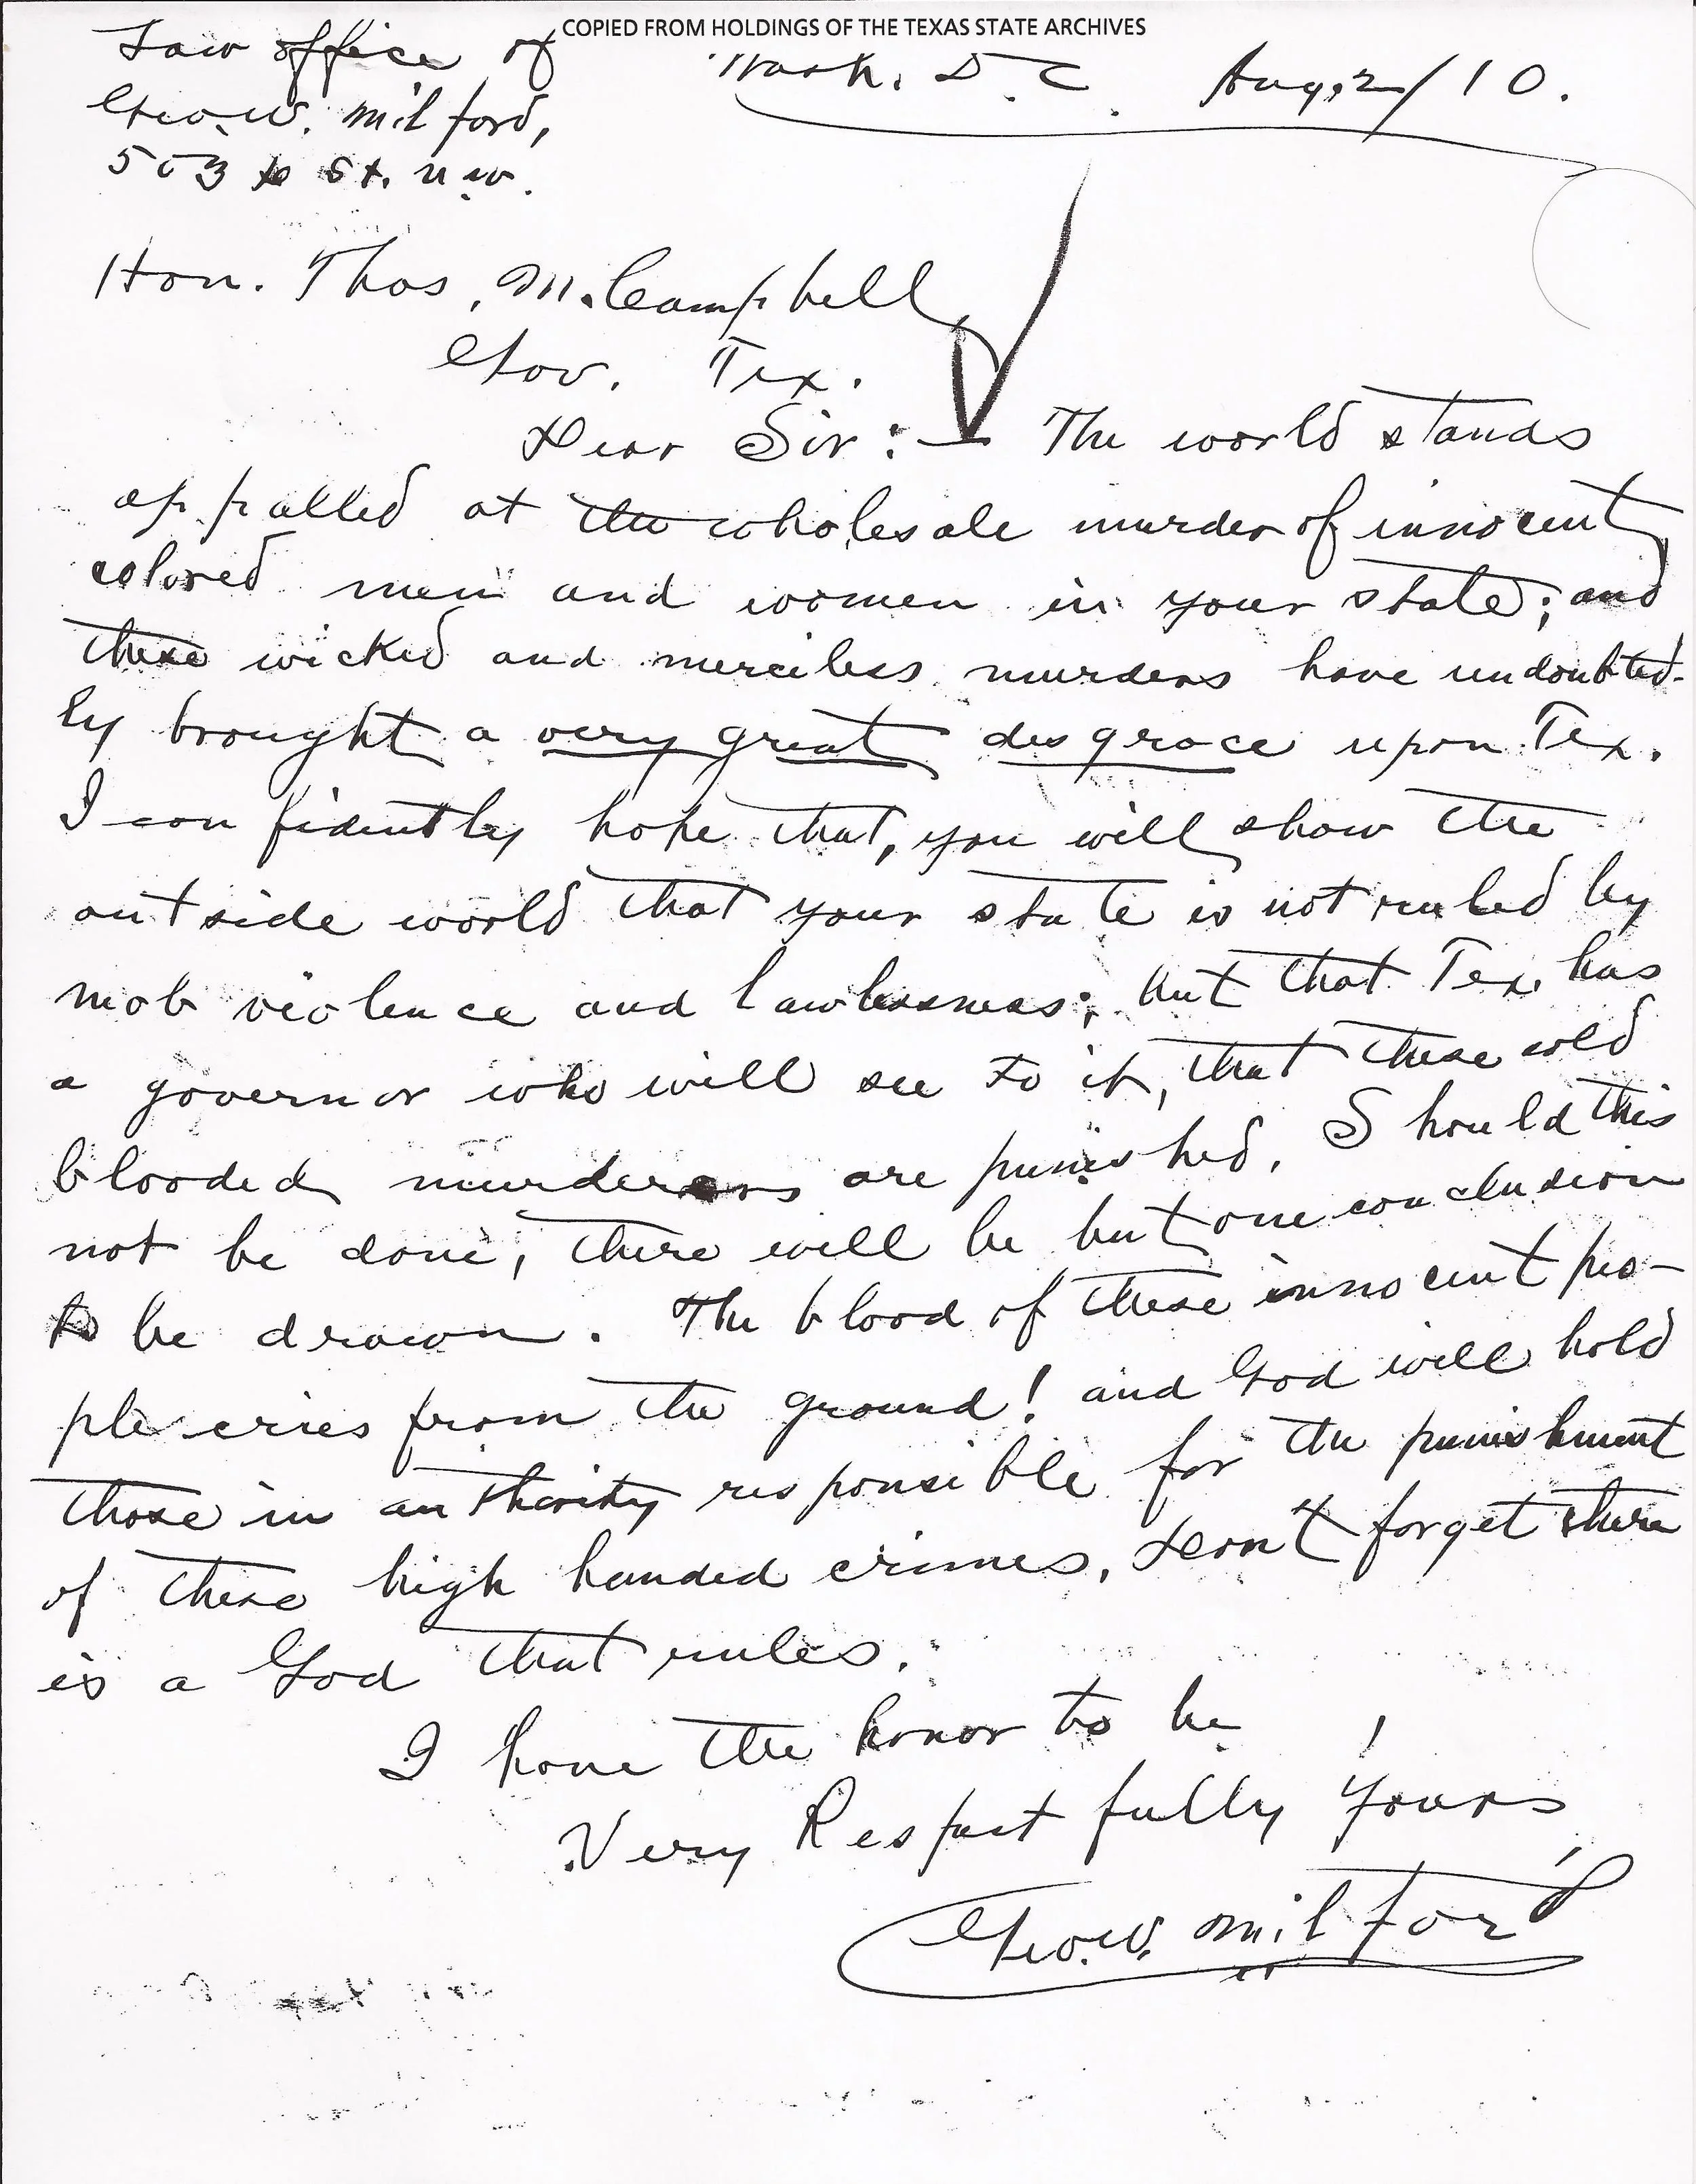 COPIED FROM HOLDINGS OF THE TEXAS STATE ARCHIVES
Law office of
Geo. W. Milford,
503 St. N.W.
Wash. D.C. Aug. 2/10.
Hon. Thos. M. Campbell
Gov. Tex.
Dear Sir:— The world stands
appalled at the wholesale murder of innocent
colored men and women in your state; and
these wicked and merciless murders have undoubted-
ly brought a very great disgrace upon Tex.
I confidently hope that, you will show the
outside world that your state is not ruled by
mob violence and lawlessness; but that Tex. has
a governor who will see to it, that these cold
blooded murderers are punished. Should this
not be done, there will be but one conclusion
to be drawn. The blood of these innocent peo-
ple cries from the ground! and God will hold
those in authority responsible for the punishment
of these high handed crimes. Don't forget there
is a God that rules.
I have the honor to be,
Very Respectfully Yours,
Geo. W. Milford